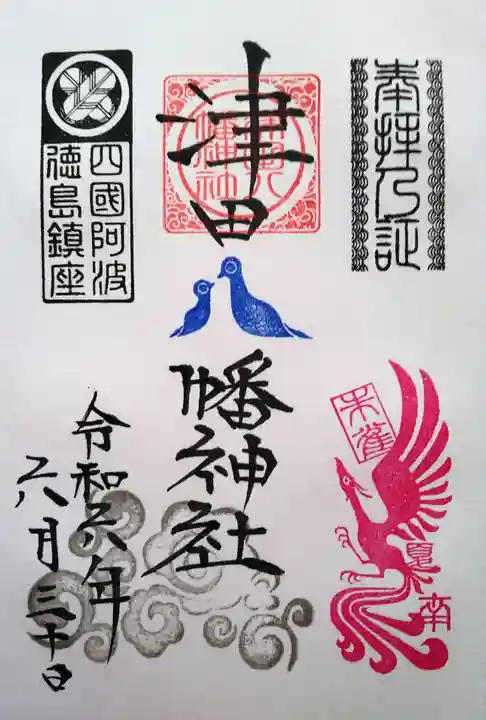 奉拝乃証
津田
八
幡神社
四國阿波
徳島鎮座
令和六年
六月三十日
朱雀
夏
南